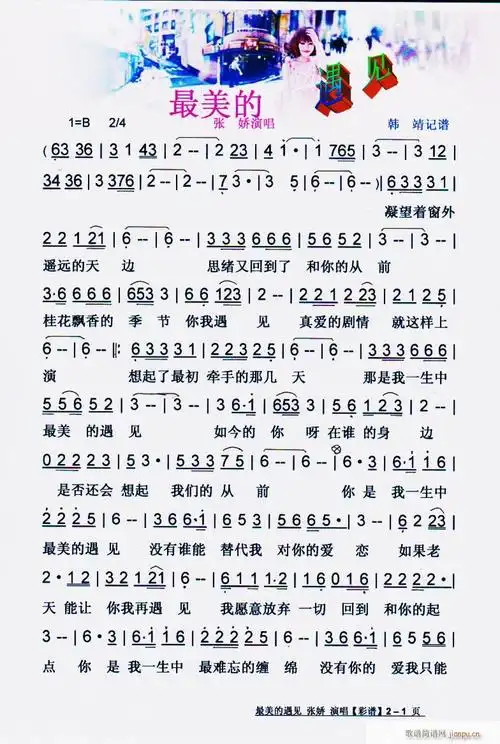 最美的遇见
1=B 2/4 张 娇演唱 韩 靖记谱
( 63 36 | 3 1 43 | 2 -- | 2 23 | 4 1· | 1 765 | 3 -- | 3 12 |
34 36 | 3 376 | 2 -- | 7 3· | 3 5 | 6 -- | 6 -- )| 6 3 3 3 1 |
凝望着窗外
2 2 1 21 | 6 -- | 6 -- | 3 3 3 6 6 6 | 5 6 5 2 | 3 -- | 3 -- |
遥远的天 边 思绪又回到了 和你的从 前
3·6 6 6 6 | 653 3 | 6 6 123 | 2 -- | 2 2 2 1 2 23 | 2 1 2 5 |
桂花飘香的 季 节 你我遇 见 真爱的剧情 就这样上
6 -- | 6 -- ‖: 6 3 3 3 1 | 2 2 2 3 2 1 | 6 -- | 3 3 3 6 6 6 |
演 想起了最初 牵手的那几 天 那是我一生中
5 5 6 5 2 | 3 -- | 3 -- | 3 6·1 | 653 5 | 5 6 1 2 3 | 2 -- |
最美 的遇 见 如今的 你 呀 在谁的身 边
0 2 2 2 1 | 5 3· | 5 3 3 7 5 | 6 -- | 6 -- | 3 6· | 6·1 1 6 |
是否还会 想起 我们的 从 前 你 是 我一生中
2 2 2 5 | 6 -- | 3 6 6·1 | 6 5 3 | 5 6 6 5· | 3 -- | 6 2 23 |
最美的遇 见 没有谁能 替代我 对你的爱 恋 如果老
2·2 | 3 2 1 21 | 6 -- | 6 1 1 1 2 1 | 1 6 0 1 6 | 2 2 2 2· |
天 能让 你我再遇 见 我愿意放弃 一切 回到 和你的起
3 -- | 6 3· | 6·1 1 6 | 2 2 2 2 5 | 6 -- | 3 6 6·1 | 6 5 5 6 |
点 你 是 我一生中 最难忘的缠 绵 没有你的 爱我只能
最美的遇见 张娇 演唱【彩谱】2－1 页
歌谱简谱网 jianpu.cn